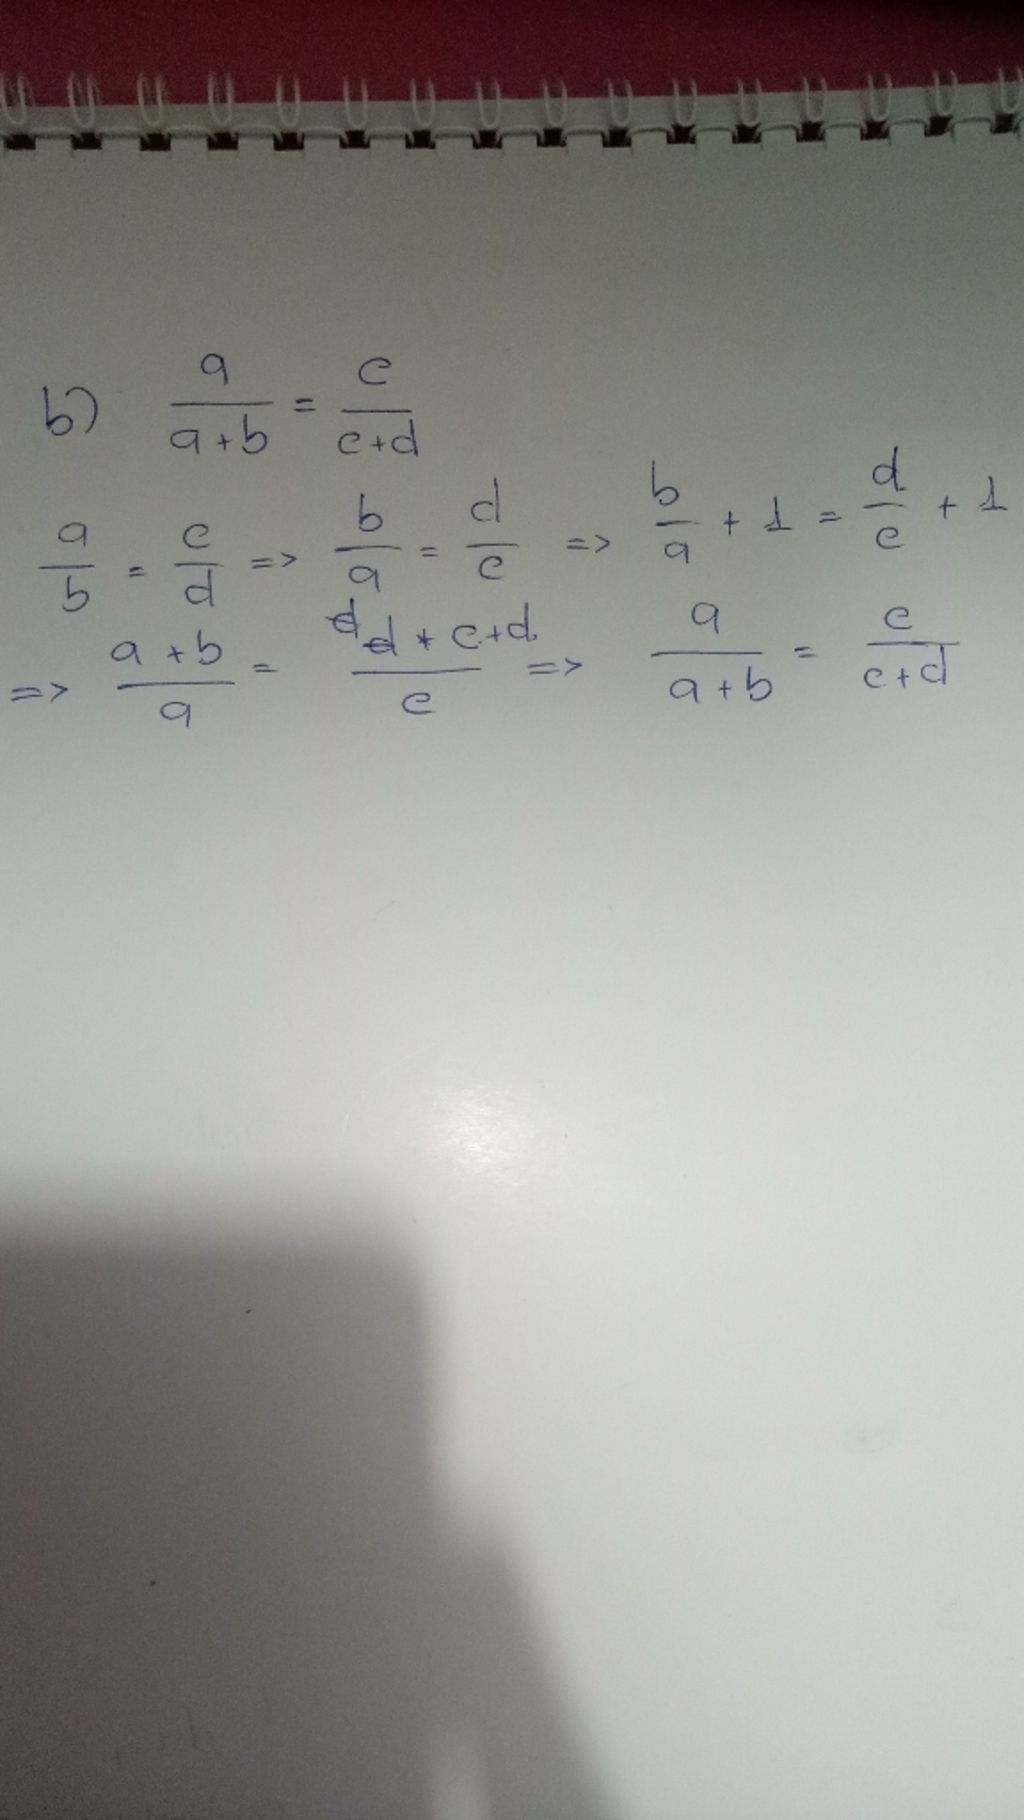 b) a/(a+b) = c/(c+d)
a/b = c/d => b/a = d/c => b/a + 1 = d/c + 1
=> (a+b)/a = (c+d)/c => a/(a+b) = c/(c+d)